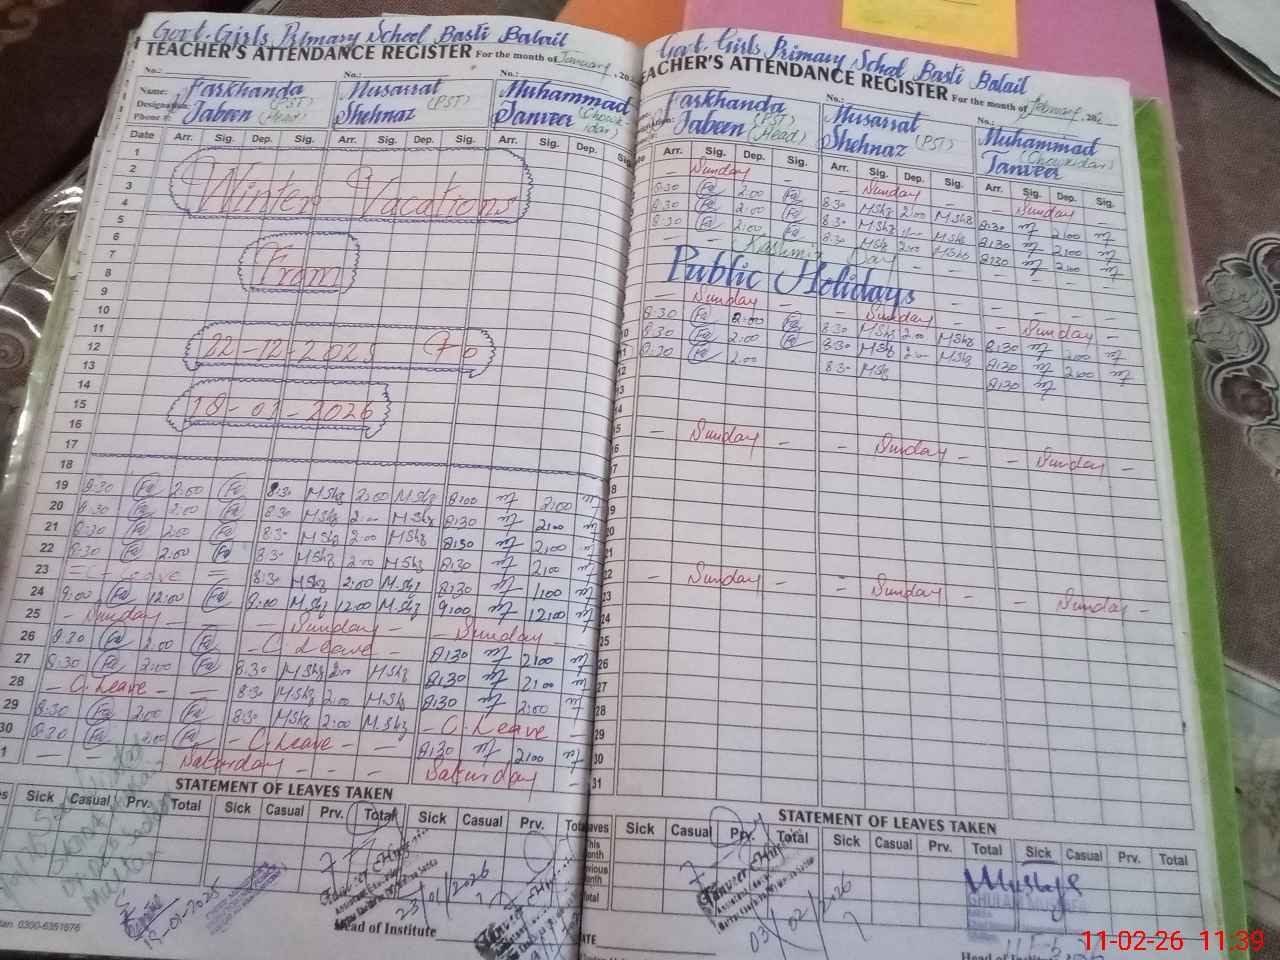 Govt. Girls Primary School Basti Balail
TEACHER'S ATTENDANCE REGISTER For the month of January, 202
No.: No.: No.:
Name: Farkhanda Musarrat Muhammad
Designation: (PST) (PST)
Phone #: Jabeen (Head) Shehnaz Tanveer (Chowkidar)
Date Arr. Sig. Dep. Sig. Arr. Sig. Dep. Sig. Arr. Sig. Dep. Sig.
1
2
3 Winter Vacations
4
5
6
7 From
8
9
10
11
12 22-12-2025 To
13
14
15 18-01-2026
16
17
18
19 8:30 Fa 2:00 Fa 8:30 MShz 2:00 MShz 8:00 m 2:00 m
20 8:30 Fa 2:00 Fa 8:30 MShz 2:00 MShz 8:30 m 2:00 m
21 8:30 Fa 2:00 Fa 8:30 MShz 2:00 MShz 8:30 m 2:00 m
22 8:30 Fa 2:00 Fa 8:30 MShz 2:00 MShz 8:30 m 2:00 m
23 = C. Leave = 8:30 MShz 2:00 M.Shz 8:30 m 1:00 m
24 9:00 Fa 12:00 Fa 9:00 M.Shz 12:00 M.Shz 9:00 m 12:00 m
25 - Sunday - - Sunday - - Sunday -
26 8:30 Fa 2:00 Fa - C Leave - 8:30 m 2:00 m
27 8:30 Fa 2:00 Fa 8:30 MShz 2:00 MShz 8:30 m 2:00 m
28 - C. Leave - - 8:30 MShz 2:00 MShz 8:30 m 2:00 m
29 8:30 Fa 2:00 Fa 8:30 MShz 2:00 M.Shz - C. Leave -
30 8:30 Fa 2:00 Fa - C. Leave - - 8:30 m 2:00 m
1 - - Saturday - - - Saturday -
STATEMENT OF LEAVES TAKEN
Sick Casual Prv. Total Sick Casual Prv. Total Sick Casual Prv. Total
23/01/2026
0300-6351676
Head of Institute
Govt. Girls Primary School Basti Balail
TEACHER'S ATTENDANCE REGISTER For the month of February, 202
No.: No.:
Farkhanda Musarrat Muhammad
Jabeen (PST) (Head) Shehnaz (PST) Tanveer (Chowkidar)
Arr. Sig. Dep. Sig. Arr. Sig. Dep. Sig. Arr. Sig. Dep. Sig.
- Sunday - - Sunday - - Sunday -
8:30 Fa 2:00 Fa 8:30 MShz 2:00 MShz 8:30 m 2:00 m
8:30 Fa 2:00 Fa 8:30 MShz 2:00 MShz 8:30 m 2:00 m
8:30 Fa 2:00 Fa 8:30 MShz 2:00 MShz 8:30 m 2:00 m
- - Kashmir Day - - - - -
Public Holidays
- Sunday - - Sunday - - Sunday -
8:30 Fa 2:00 Fa 8:30 MShz 2:00 MShz 8:30 m 2:00 m
8:30 Fa 2:00 Fa 8:30 MShz 2:00 MShz 8:30 m 2:00 m
8:30 Fa 2:00 8:30 MShz 8:30 m
- Sunday - - Sunday - - Sunday -
- Sunday - - Sunday - - Sunday -
23
24
25
26
27
28
29
30
31
STATEMENT OF LEAVES TAKEN
Sick Casual Prv. Total Sick Casual Prv. Total Sick Casual Prv. Total
03/02/2026
Head of Institute
11-02-26 11:39